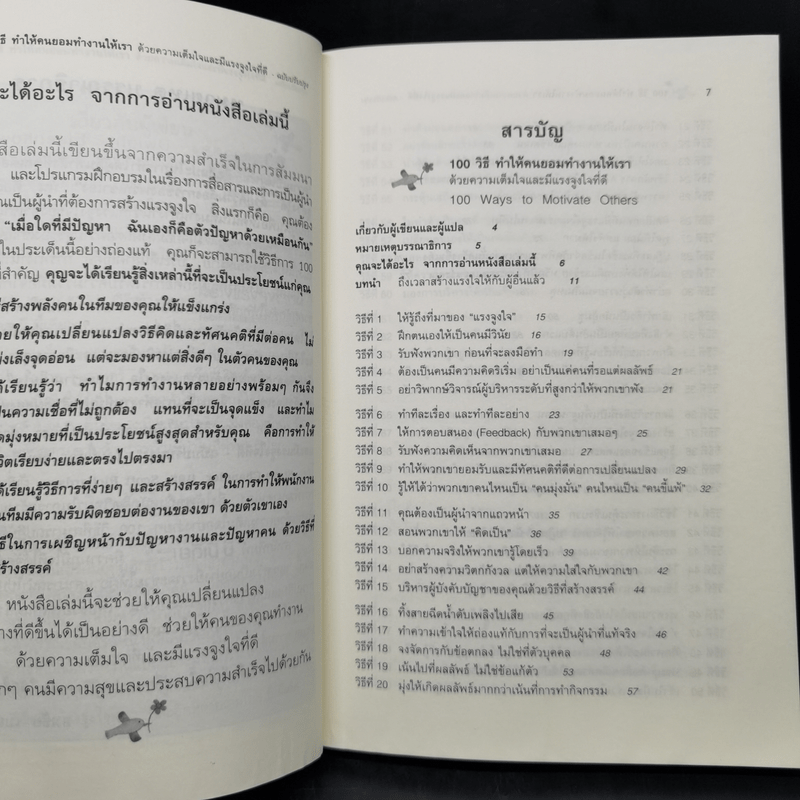 ธี ทำให้คนยอมทำงานให้เรา ด้วยความเต็มใจและมีแรงจูงใจที่ดี -
ะได้อะไร จากการอ่านหนังสือเล่มนี้
สือเล่มนี้เขียนขึ้นจากความสำเร็จในการสัมมนา
และโปรแกรมฝึกอบรมในเรื่องการสื่อสารและการเป็นผู้นำ
ณเป็นผู้นำที่ต้องการสร้างแรงจูงใจ สิ่งแรกก็คือ คุณต้อง
"เมื่อใดที่มีปัญหา ฉันเองก็คือตัวปัญหาด้วยเหมือนกัน"
ในประเด็นนี้อย่างถ่องแท้ คุณก็จะสามารถใช้วิธีการ 100
ที่สำคัญ คุณจะได้เรียนรู้สิ่งเหล่านี้ที่จะเป็นประโยชน์แก่คุณ
สร้างพลังคนในทีมของคุณให้แข็งแกร่ง
ยให้คุณเปลี่ยนแปลงวิธีคิดและทัศนคติที่มีต่อคน ไม่
งเล็งจุดอ่อน แต่จะมองหาแต่สิ่งดีๆ ในตัวคนของคุณ
ด้เรียนรู้ว่า ทำไมการทำงานหลายอย่างพร้อมๆ กันจึง
ป็นความเชื่อที่ไม่ถูกต้อง แทนที่จะเป็นจุดแข็ง และทำไม
ดมุ่งหมายที่เป็นประโยชน์สูงสุดสำหรับคุณ คือการทำให้
วิตเรียบง่ายและตรงไปตรงมา
ด้เรียนรู้วิธีการที่ง่ายๆ และสร้างสรรค์ ในการทำให้พนักงาน
นทีมมีความรับผิดชอบต่องานของเขา ด้วยตัวเขาเอง
ธีในการเผชิญหน้ากับปัญหางานและปัญหาคน ด้วยวิธีที่
ร้างสรรค์
หนังสือเล่มนี้จะช่วยให้คุณเปลี่ยนแปลง
างที่ดีขึ้นได้เป็นอย่างดี ช่วยให้คนของคุณทำงาน
ด้วยความเต็มใจ และมีแรงจูงใจที่ดี
กๆ คนมีความสุขและประสบความสำเร็จไปด้วยกัน
7
สารบัญ
100 วิธี ทำให้คนยอมทำงานให้เรา
ด้วยความเต็มใจและมีแรงจูงใจที่ดี
100 Ways to Motivate Others
เกี่ยวกับผู้เขียนและผู้แปล 4
หมายเหตุบรรณาธิการ 5
คุณจะได้อะไร จากการอ่านหนังสือเล่มนี้ 6
บทนำ ถึงเวลาสร้างแรงใจให้กับผู้อื่นแล้ว 11
วิธีที่ 1 ให้รู้ถึงที่มาของ "แรงจูงใจ" 15
วิธีที่ 2 ฝึกตนเองให้เป็นคนมีวินัย 16
วิธีที่ 3 รับฟังพวกเขา ก่อนที่จะลงมือทำ 19
วิธีที่ 4 ต้องเป็นคนมีความคิดริเริ่ม อย่าเป็นแค่คนที่รอแต่ผลลัพธ์ 21
วิธีที่ 5 อย่าวิพากษ์วิจารณ์ผู้บริหารระดับที่สูงกว่าให้พวกเขาฟัง 21
วิธีที่ 6 ทำทีละเรื่อง และทำทีละอย่าง 23
วิธีที่ 7 ให้การตอบสนอง (Feedback) กับพวกเขาเสมอๆ 25
วิธีที่ 8 รับฟังความคิดเห็นจากพวกเขาเสมอ 27
วิธีที่ 9 ทำให้พวกเขายอมรับและมีทัศนคติที่ดีต่อการเปลี่ยนแปลง 29
วิธีที่ 10 รู้ให้ได้ว่าพวกเขาคนไหนเป็น "คนมุ่งมั่น" คนไหนเป็น "คนขี้แพ้" 32
วิธีที่ 11 คุณต้องเป็นผู้นำจากแถวหน้า 35
วิธีที่ 12 สอนพวกเขาให้ "คิดเป็น" 36
วิธีที่ 13 บอกความจริงให้พวกเขารู้โดยเร็ว 39
วิธีที่ 14 อย่าสร้างความวิตกกังวล แต่ให้ความใส่ใจกับพวกเขา 42
วิธีที่ 15 บริหารผู้บังคับบัญชาของคุณด้วยวิธีที่สร้างสรรค์ 44
วิธีที่ 16 ทิ้งสายฉีดน้ำดับเพลิงไปเสีย 45
วิธีที่ 17 ทำความเข้าใจให้ถ่องแท้กับการที่จะเป็นผู้นำที่แท้จริง 46
วิธีที่ 18 จงจัดการกับข้อตกลง ไม่ใช่ที่ตัวบุคคล 48
วิธีที่ 19 เน้นไปที่ผลลัพธ์ ไม่ใช่ข้อแก้ตัว 53
วิธีที่ 20 มุ่งให้เกิดผลลัพธ์มากกว่าเน้นที่การทำกิจกรรม 57